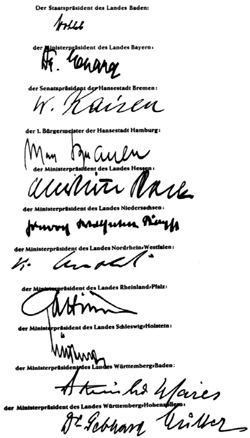 Der Staatspräsident des Landes Baden:
Wohleb
der Ministerpräsident des Landes Bayern:
Dr. Ehard
der Senatspräsident der Hansestadt Bremen:
W. Kaisen
der 1. Bürgermeister der Hansestadt Hamburg:
Max Brauer
der Ministerpräsident des Landes Hessen:
der Ministerpräsident des Landes Niedersachsen:
der Ministerpräsident des Landes Nordrhein-Westfalen:
K. Arnold
der Ministerpräsident des Landes Rheinland-Pfalz:
Altmeier
der Ministerpräsident des Landes Schleswig-Holstein:
der Ministerpräsident des Landes Württemberg-Baden:
Reinhold Maier
der Ministerpräsident des Landes Württemberg-Hohenzollern:
Dr. Gebhard Müller